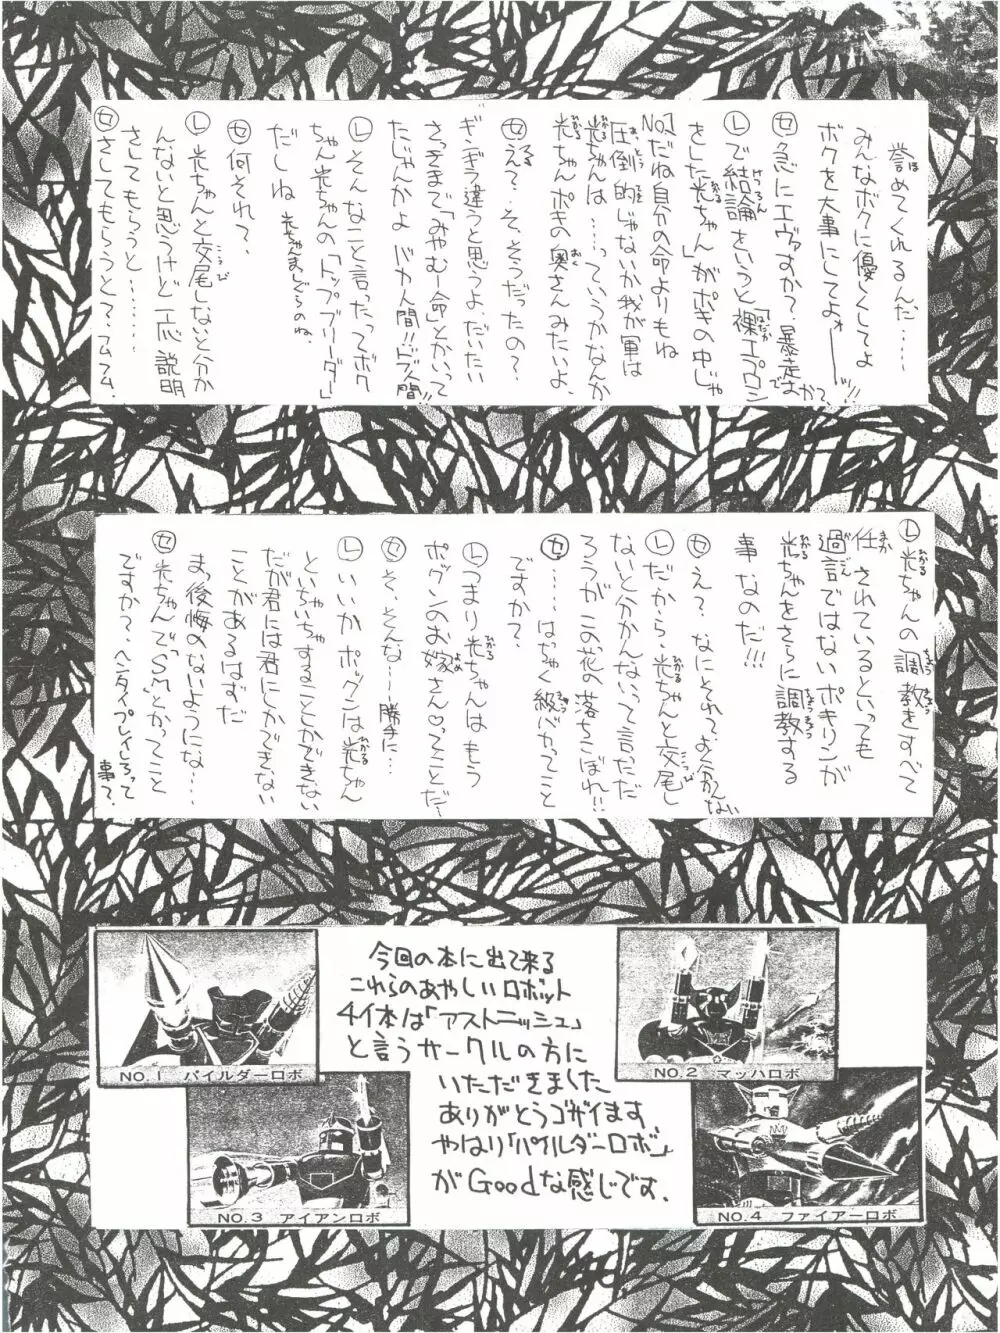 誉めてくれるんだ……
みんなボクに優しくしてよ
ボクを大事にしてよォーーッ!!
セ 急にエヴァすか？、暴走すか？、
L で結論をいうと「裸エプロンで
をした光ちゃん」がボギの中じゃ
No.1だね自分の命よりもね
圧倒的じゃないか我が軍は
光ちゃんは……っていうかなんか
光ちゃんポキの奥さんみたいよ
セ え？、そ、そうだったの？
ギンギラ違うと思ってよ、だいたい
さっきまで「みやむー命」とかいって
たじゃんかよ バカ人間!!ドブ人間!!
L そんなこと言ったってボク
ちゃん光ちゃんの「トップブリーダー」
だしね 光ちゃんまっしぐらのね、
セ 何それ？、
L 光ちゃんと交尾しないと分か
んないと思うけど一応説明
さしてもらうと………
セ さしてもらうとて、フムフム、
L 光ちゃんの調教をすべて
任されているといっても
過言ではないポキリンが
光ちゃんをさらに調教する
事なのだ!!!
セ え？、なにそれてよく分かんない
L だから、光ちゃんと交尾し
ないと分かんないって言っただ
ろうがこの花の落ちこぼれ!!
セ ……はちゃく級バカってこと
ですか？、
L つまり光ちゃんはもう
ボグンのお嫁さん♡ってことだ
セ そ、そんな……勝手に…
L いいかポックンは光ちゃん
といちゃいちゃすることしかできない
だが君には君にしかできない
ことがあるはずだ
まっ後悔のないようにな…
セ 光ちゃんで"SM"とかってこと
ですか？、ヘンタイプレイしろって
事？、
今回の本に出て来る
これらのあやしいロボット
4体は「アストニッシュ」
と言うサークルの方に
いただきました
ありがとうゴザイます、
やはり「パイルダーロボ」
がGoodな感じです、
NO.1 パイルダーロボ
NO.2 マッハロボ
NO.3 アイアンロボ
NO.4 ファイアーロボ